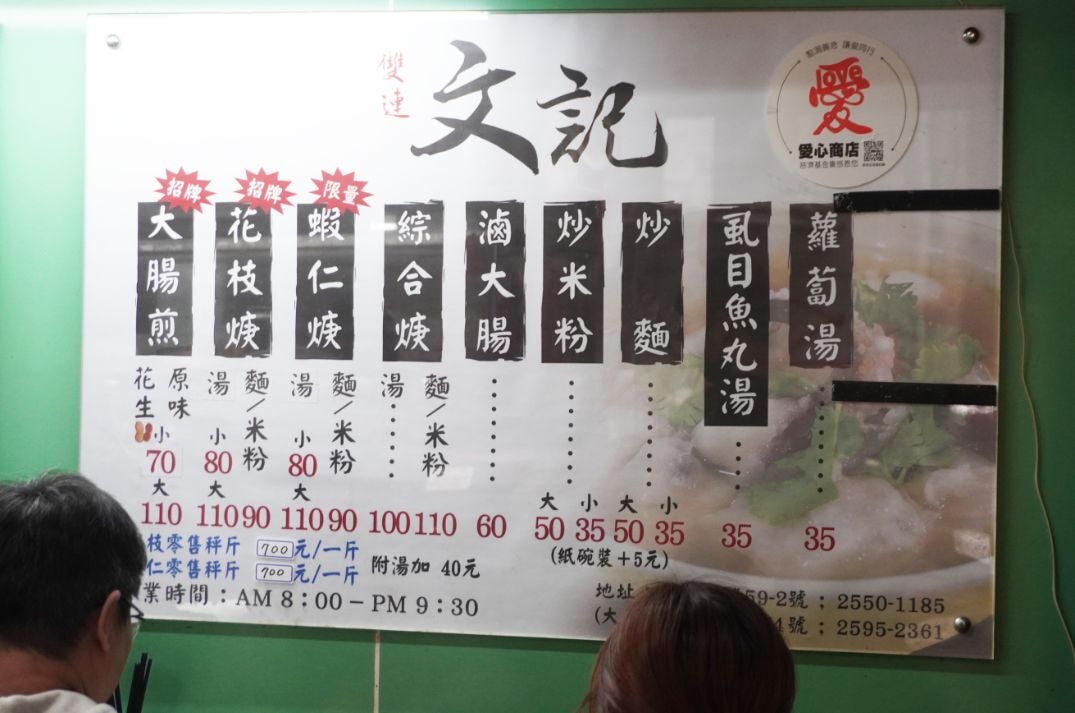 雙連
文記
點滴善念 讓愛同行
LOVE
愛
愛心商店
慈濟基金會感恩您
招牌
大腸煎
原味
花生
小
70
大
110
招牌
花枝焿
湯
小
80
大
110
麵/米粉
90
限量
蝦仁焿
湯
小
80
大
110
麵/米粉
90
綜合焿
湯
100
麵/米粉
110
滷大腸
60
炒米粉
大
50
小
35
炒麵
大
50
小
35
(紙碗裝+5元)
虱目魚丸湯
35
蘿蔔湯
35
枝零售秤斤 700元/一斤
仁零售秤斤 700元/一斤
附湯加 40元
業時間:AM 8:00-PM 9:30
地址
59-2號;2550-1185
(大
號;2595-2361